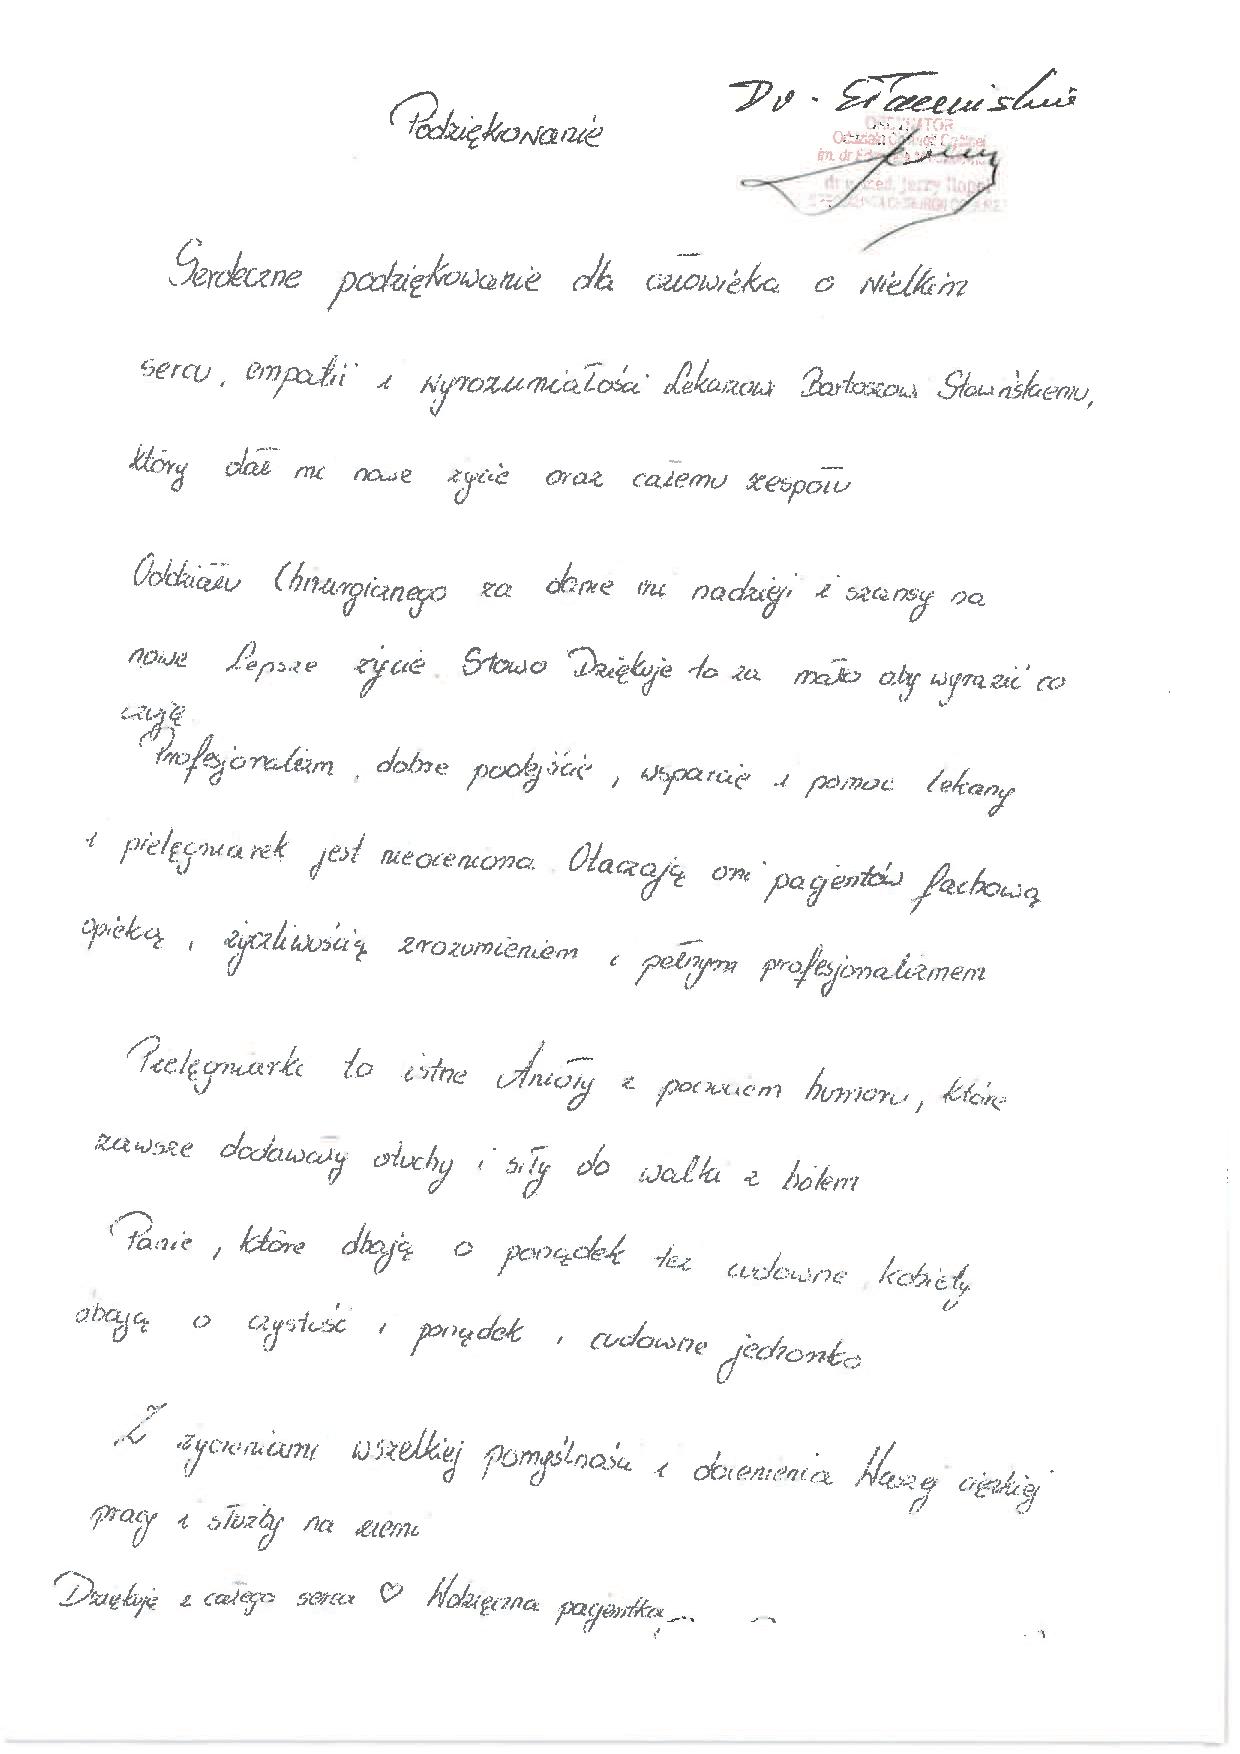 Podziękowanie
Dr.
ORDYNATOR
im. dr
Serdeczne podziękowanie dla człowieka o wielkim
sercu, empatii i wyrozumiałości Lekarzowi Bartoszowi Słowińskiemu,
który dał mi nowe życie oraz całemu zespołu
Oddziału Chirurgicznego za danie mi nadzieji i szansy na
nowe Lepsze życie. Słowo Dziękuje to za mało aby wyrazić co
czuję
Profesjonalizm, dobre podejście, wsparcie i pomoc lekarzy
i pielęgniarek jest nieoceniona. Otaczają oni pacjentów fachową
opieką, życzliwością zrozumieniem i pełnym profesjonalizmem
Pielęgniarki to istne Anioły z poczuciem humoru, które
zawsze dodawały otuchy i siły do walki z bólem
Panie, które dbają o porządek też cudowne kobiety
dbają o czystość i porządek, cudowne jednonko
Z życzeniami wszelkiej pomyślności i docenienia Waszej ciężkiej
pracy i służby na ziemi
Dziękuje z całego serca ♡ Wdzięczna pacjentka